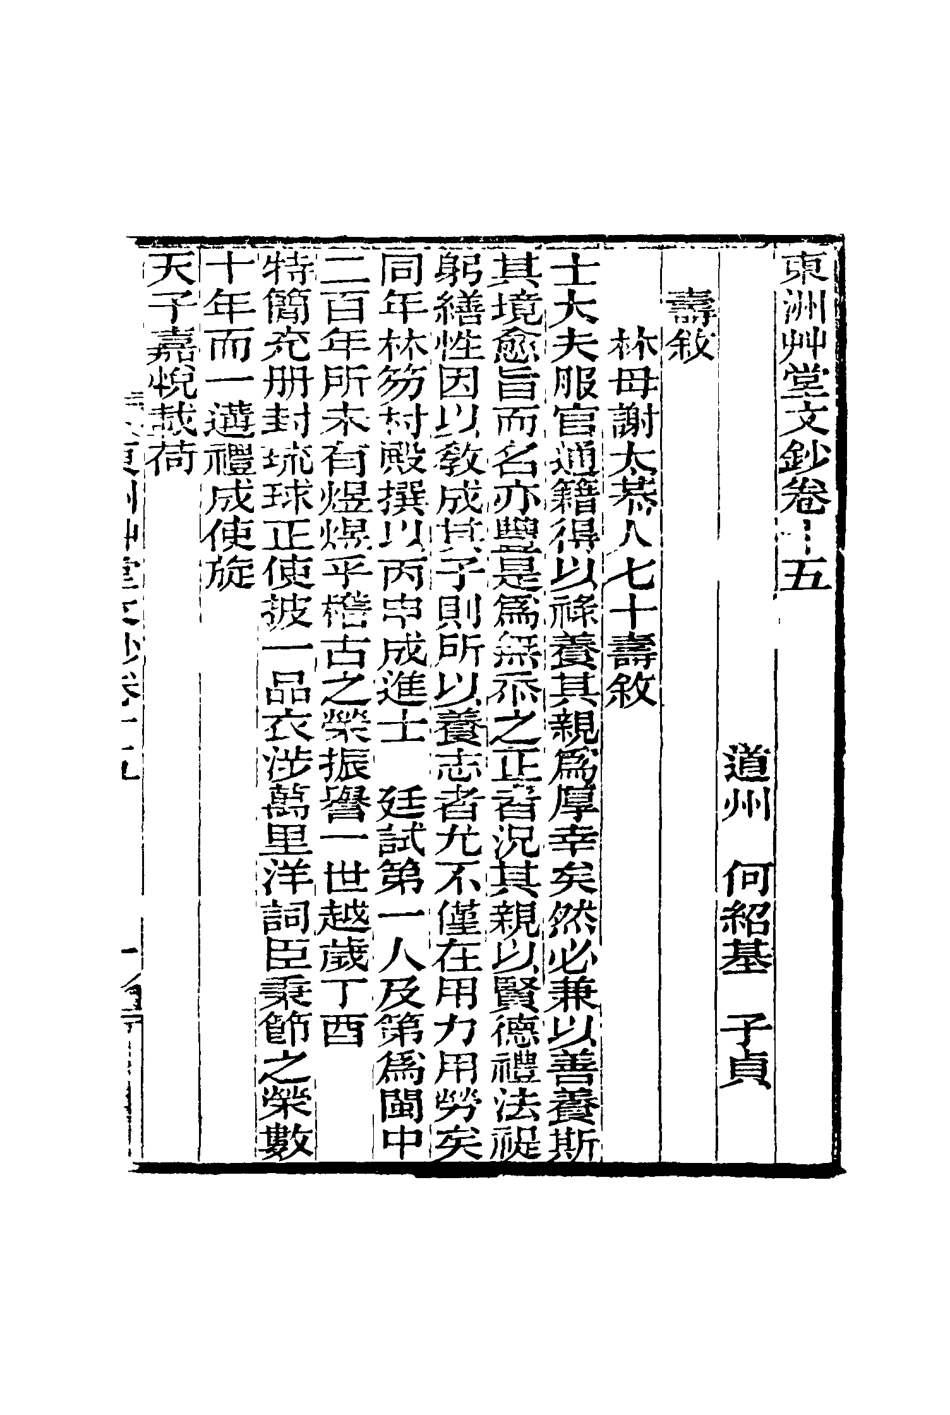 東洲艸堂文鈔卷十五
道州　何紹基　子貞
壽敘
林母謝太恭人七十壽敘
士大夫服官通籍得以祿養其親爲厚幸矣然必兼以善養斯
其境愈旨而名亦與是爲無忝之正者況其親以賢德禮法禔
躬繕性因以教成其子則所以養志者尤不僅在用力用勞矣
同年林勿村殿撰以丙申成進士　廷試第一人及第爲閩中
二百年所未有煜煜乎稽古之榮振譽一世越歲丁酉
特簡充册封琉球正使披一品衣涉萬里洋詞臣秉節之榮數
十年而一遘禮成使旋
天子嘉悅載荷
東洲艸堂文鈔卷十五　一